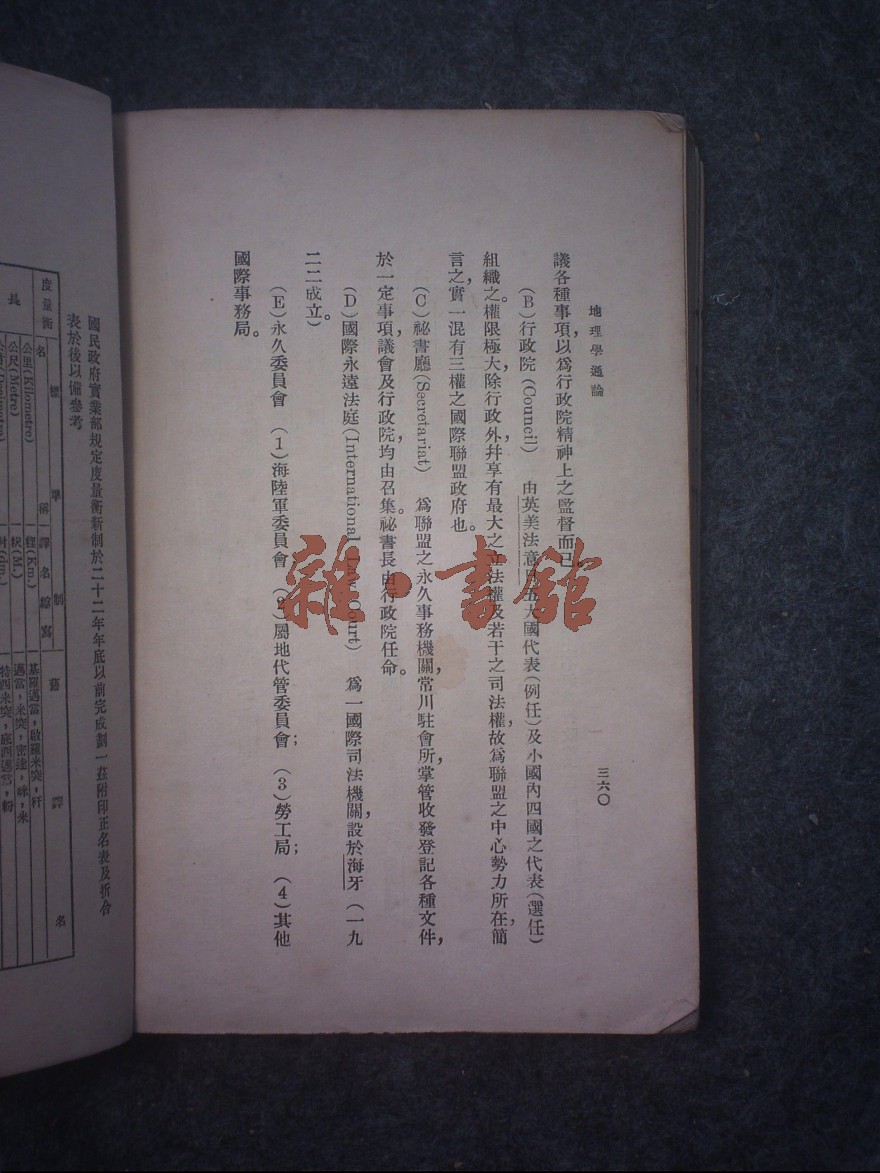 地理學通論
三六〇
議各種事項，以爲行政院精神上之監督而已。
(B)行政院(Council) 由英美法意日五大國代表(例任)及小國內四國之代表(選任)
組織之。權限極大，除行政外，幷享有最大之立法權及若干之司法權，故爲聯盟之中心勢力所在，簡
言之，實一混有三權之國際聯盟政府也。
(C)祕書廳(Secretariat) 爲聯盟之永久事務機關，常川駐會所，掌管收發登記各種文件，
於一定事項，議會及行政院，均由召集。祕書長由行政院任命。
(D)國際永遠法庭(International Law Court) 爲一國際司法機關，設於海牙(一九
二二成立。)
(E)永久委員會 (1)海陸軍委員會 (2)屬地代管委員會； (3)勞工局； (4)其他
國際事務局。
國民政府實業部規定度量衡新制於二十二年年底以前完成劃一茲附印正名表及折合
表於後以備參考
度量衡 標準制 舊譯名
名稱 譯名 縮寫
長
公里(Kilometre) 粁(Km.) 基羅邁當，啟羅米突，粁
公尺(Metre) 粎(M.) 邁當，米突，密達，咪，米
雜·書館